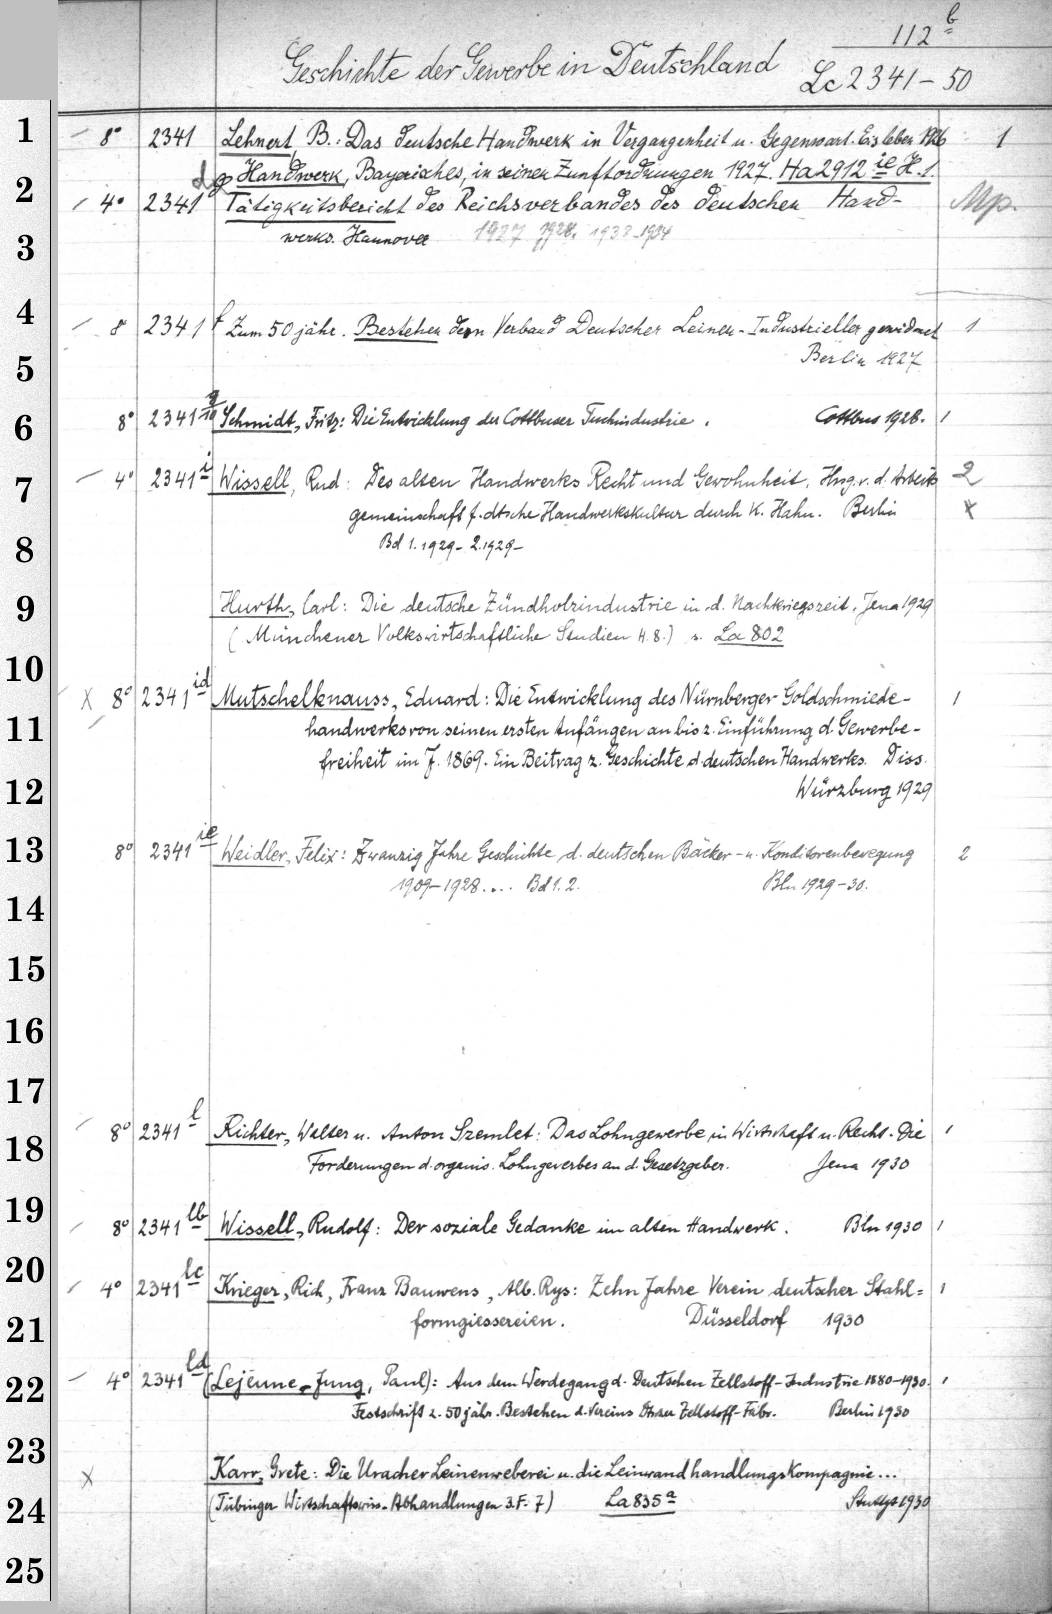 112 b
Geschichte der Gewerbe in Deutschland
Lc 2341-50
1 8° 2341 Lehnert, B.: Das deutsche Handwerk in Vergangenheit u. Gegenwart. Eisleben 1926 1
d Handwerk, Bayerisches, in seinen Zunftordnungen 1927. Ha 2912 ie H. 1.
2 4° 2341 Tätigkeitsbericht des Reichsverbandes des deutschen Hand- Mp.
3 werks. Hannover 1927 1928. 1933-1934
4 8 2341 f Zum 50 jähr. Bestehen dem Verband Deutscher Leinen-Industrieller gewidmet 1
5 Berlin 1927
6 8° 2341 g Schmidt, Fritz: Die Entwicklung der Cottbuser Tuchindustrie. Cottbus 1928. 1
7 4° 2341 i Wissell, Rud: Des alten Handwerks Recht und Gewohnheit. Hrsg. v. d. Arbeits 2
gemeinschaft f. dtsche Handwerkskultur durch K. Hahn. Berlin x
8 Bd 1. 1929- 2. 1929-
9 Hurth, Carl: Die deutsche Zündholzindustrie in d. Nachkriegszeit. Jena 1929
(Münchener Volkswirtschaftliche Studien H. 8.) s. La 802
10
x 8° 2341 id Mutschelknauss, Eduard: Die Entwicklung des Nürnberger Goldschmiede- 1
11 handwerks von seinen ersten Anfängen an bis z. Einführung d. Gewerbe-
freiheit im J. 1869. Ein Beitrag z. Geschichte d. deutschen Handwerks. Diss.
12 Würzburg 1929
13 8° 2341 ie Weidler, Felix: Zwanzig Jahre Geschichte d. deutschen Bäcker- u. Konditorenbewegung 2
1909-1928 ... Bd 1. 2. Bln 1929-30.
14
15
16
17
18 8° 2341 l Richter, Walter u. Anton Szemlet: Das Lohngewerbe in Wirtschaft u. Recht. Die 1
Forderungen d. organis. Lohngewerbes an d. Gesetzgeber. Jena 1930
19 8° 2341 lb Wissell, Rudolf: Der soziale Gedanke im alten Handwerk. Bln 1930 1
20 4° 2341 lc Krieger, Rich, Franz Bauwens, Alb. Rys: Zehn Jahre Verein deutscher Stahl= 1
21 formgiessereien. Düsseldorf 1930
22 4° 2341 ld (Lejeune-Jung, Paul): Aus dem Werdegang d. Deutschen Zellstoff-Industrie 1880-1930. 1
Festschrift z. 50 jähr. Bestehen d. Vereins Dtscher Zellstoff-Fabr. Berlin 1930
23 x Karr, Grete: Die Uracher Leinenweberei u. die Leinwandhandlungskompagnie ...
24 (Tübinger Wirtschaftswiss. Abhandlungen 3. F. 7) La 835 a Stuttgt 1930
25